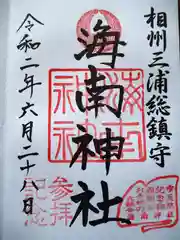 相州三浦総鎮守
海南神社
令和二年六月二十八日
参拝
記念